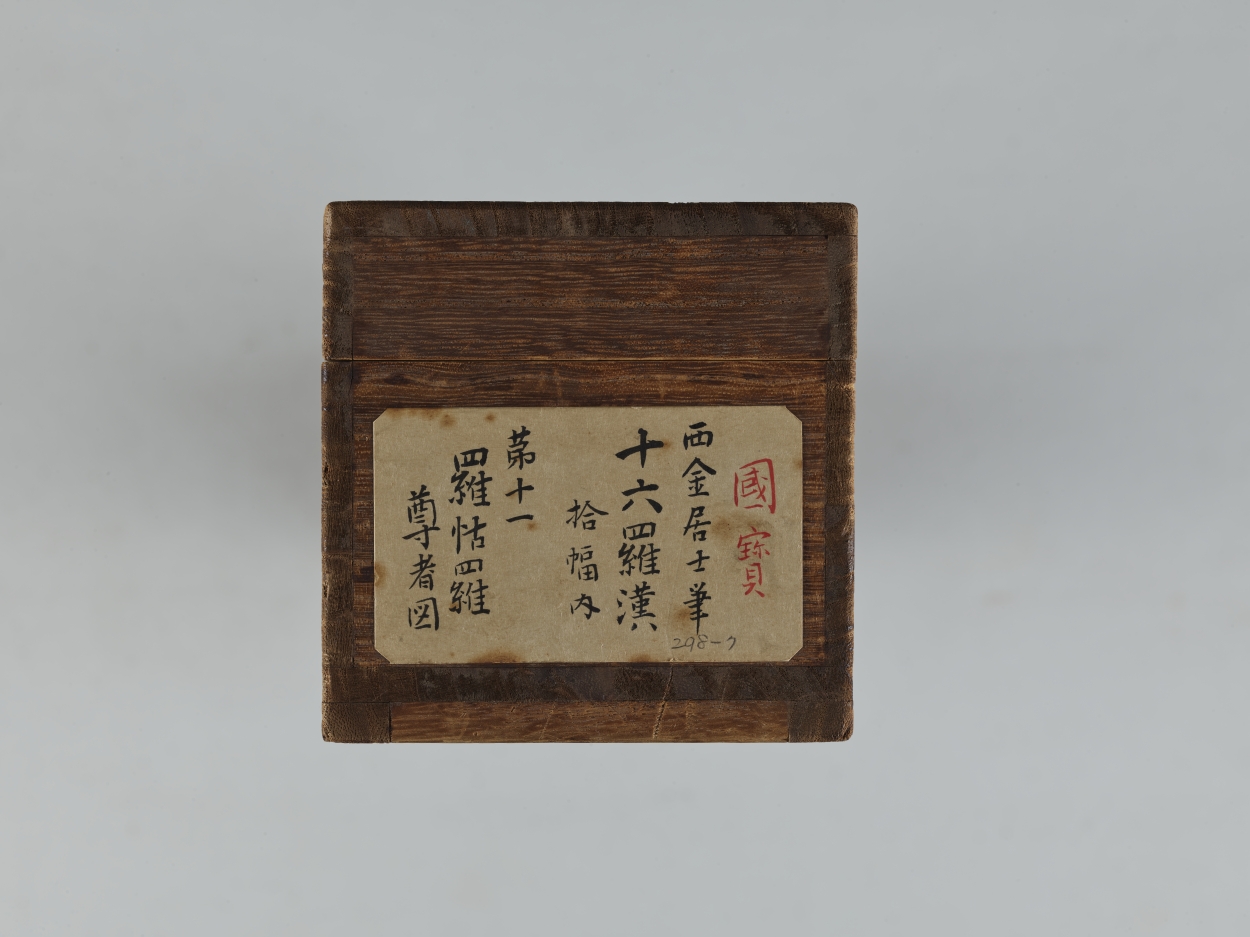 國寳
西金居士筆
十六羅漢
拾幅内
第十一
羅怙羅
尊者図
298-7